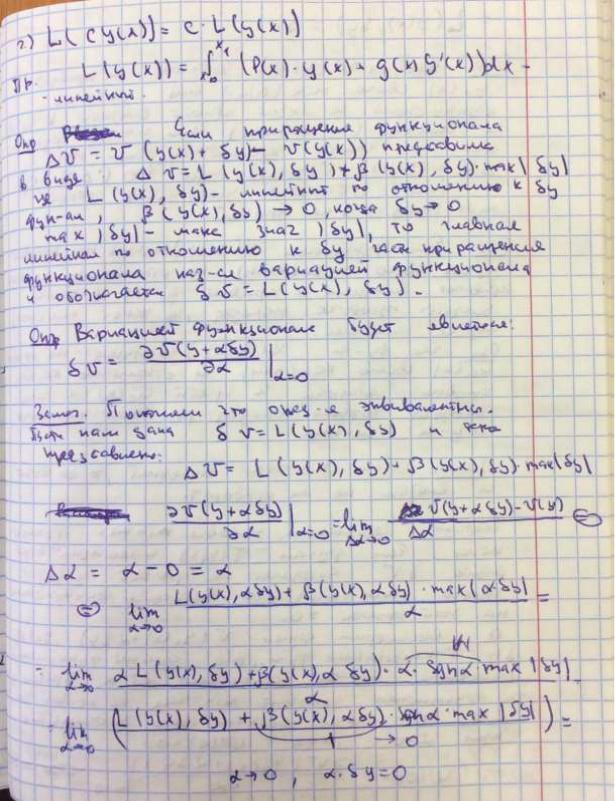 2.) L(cy(x)) = c·L(y(x))
Пр. L(y(x)) = ∫_{x₀}^{x₁} (p(x)·y(x) + g(x)y'(x))dx -
- линейный.
Опр Если приращение функционала
Δv = v(y(x)+δy) - v(y(x)) представимо
в виде: Δv = L(y(x), δy) + β(y(x), δy)·max|δy|
где L(y(x), δy) - линейный по отношению к δy
фун-ал, β(y(x), δy) → 0, когда δy → 0
max|δy| - макс знач |δy|, то главная
линейная по отношению к δy часть приращения
функционала наз-ся вариацией функционала
и обозначается δv = L(y(x), δy).
Опр Вариацией функционала будет являться:
δv = ∂v(y+αδy)/∂α |_{α=0}
Замеч. Покажем что опред-я эквивалентны.
Пусть нам дана δv = L(y(x), δy) и она
представлено:
Δv = L(y(x), δy) + β(y(x), δy)·max|δy|
∂v(y+αδy)/∂α |_{α=0} = lim_{Δα→0} v(y+αδy) - v(y)/Δα ⊜
Δα = α - 0 = α
⊜ lim_{α→0} L(y(x), αδy) + β(y(x), αδy)·max|αδy|/α =
= lim_{α→0} αL(y(x), δy) + β(y(x), αδy)·α·sgnα·max|δy|/α
= lim_{α→0} (L(y(x), δy) + β(y(x), αδy)·sgnα·max|δy|) =
→ 0
α→0, α·δy=0